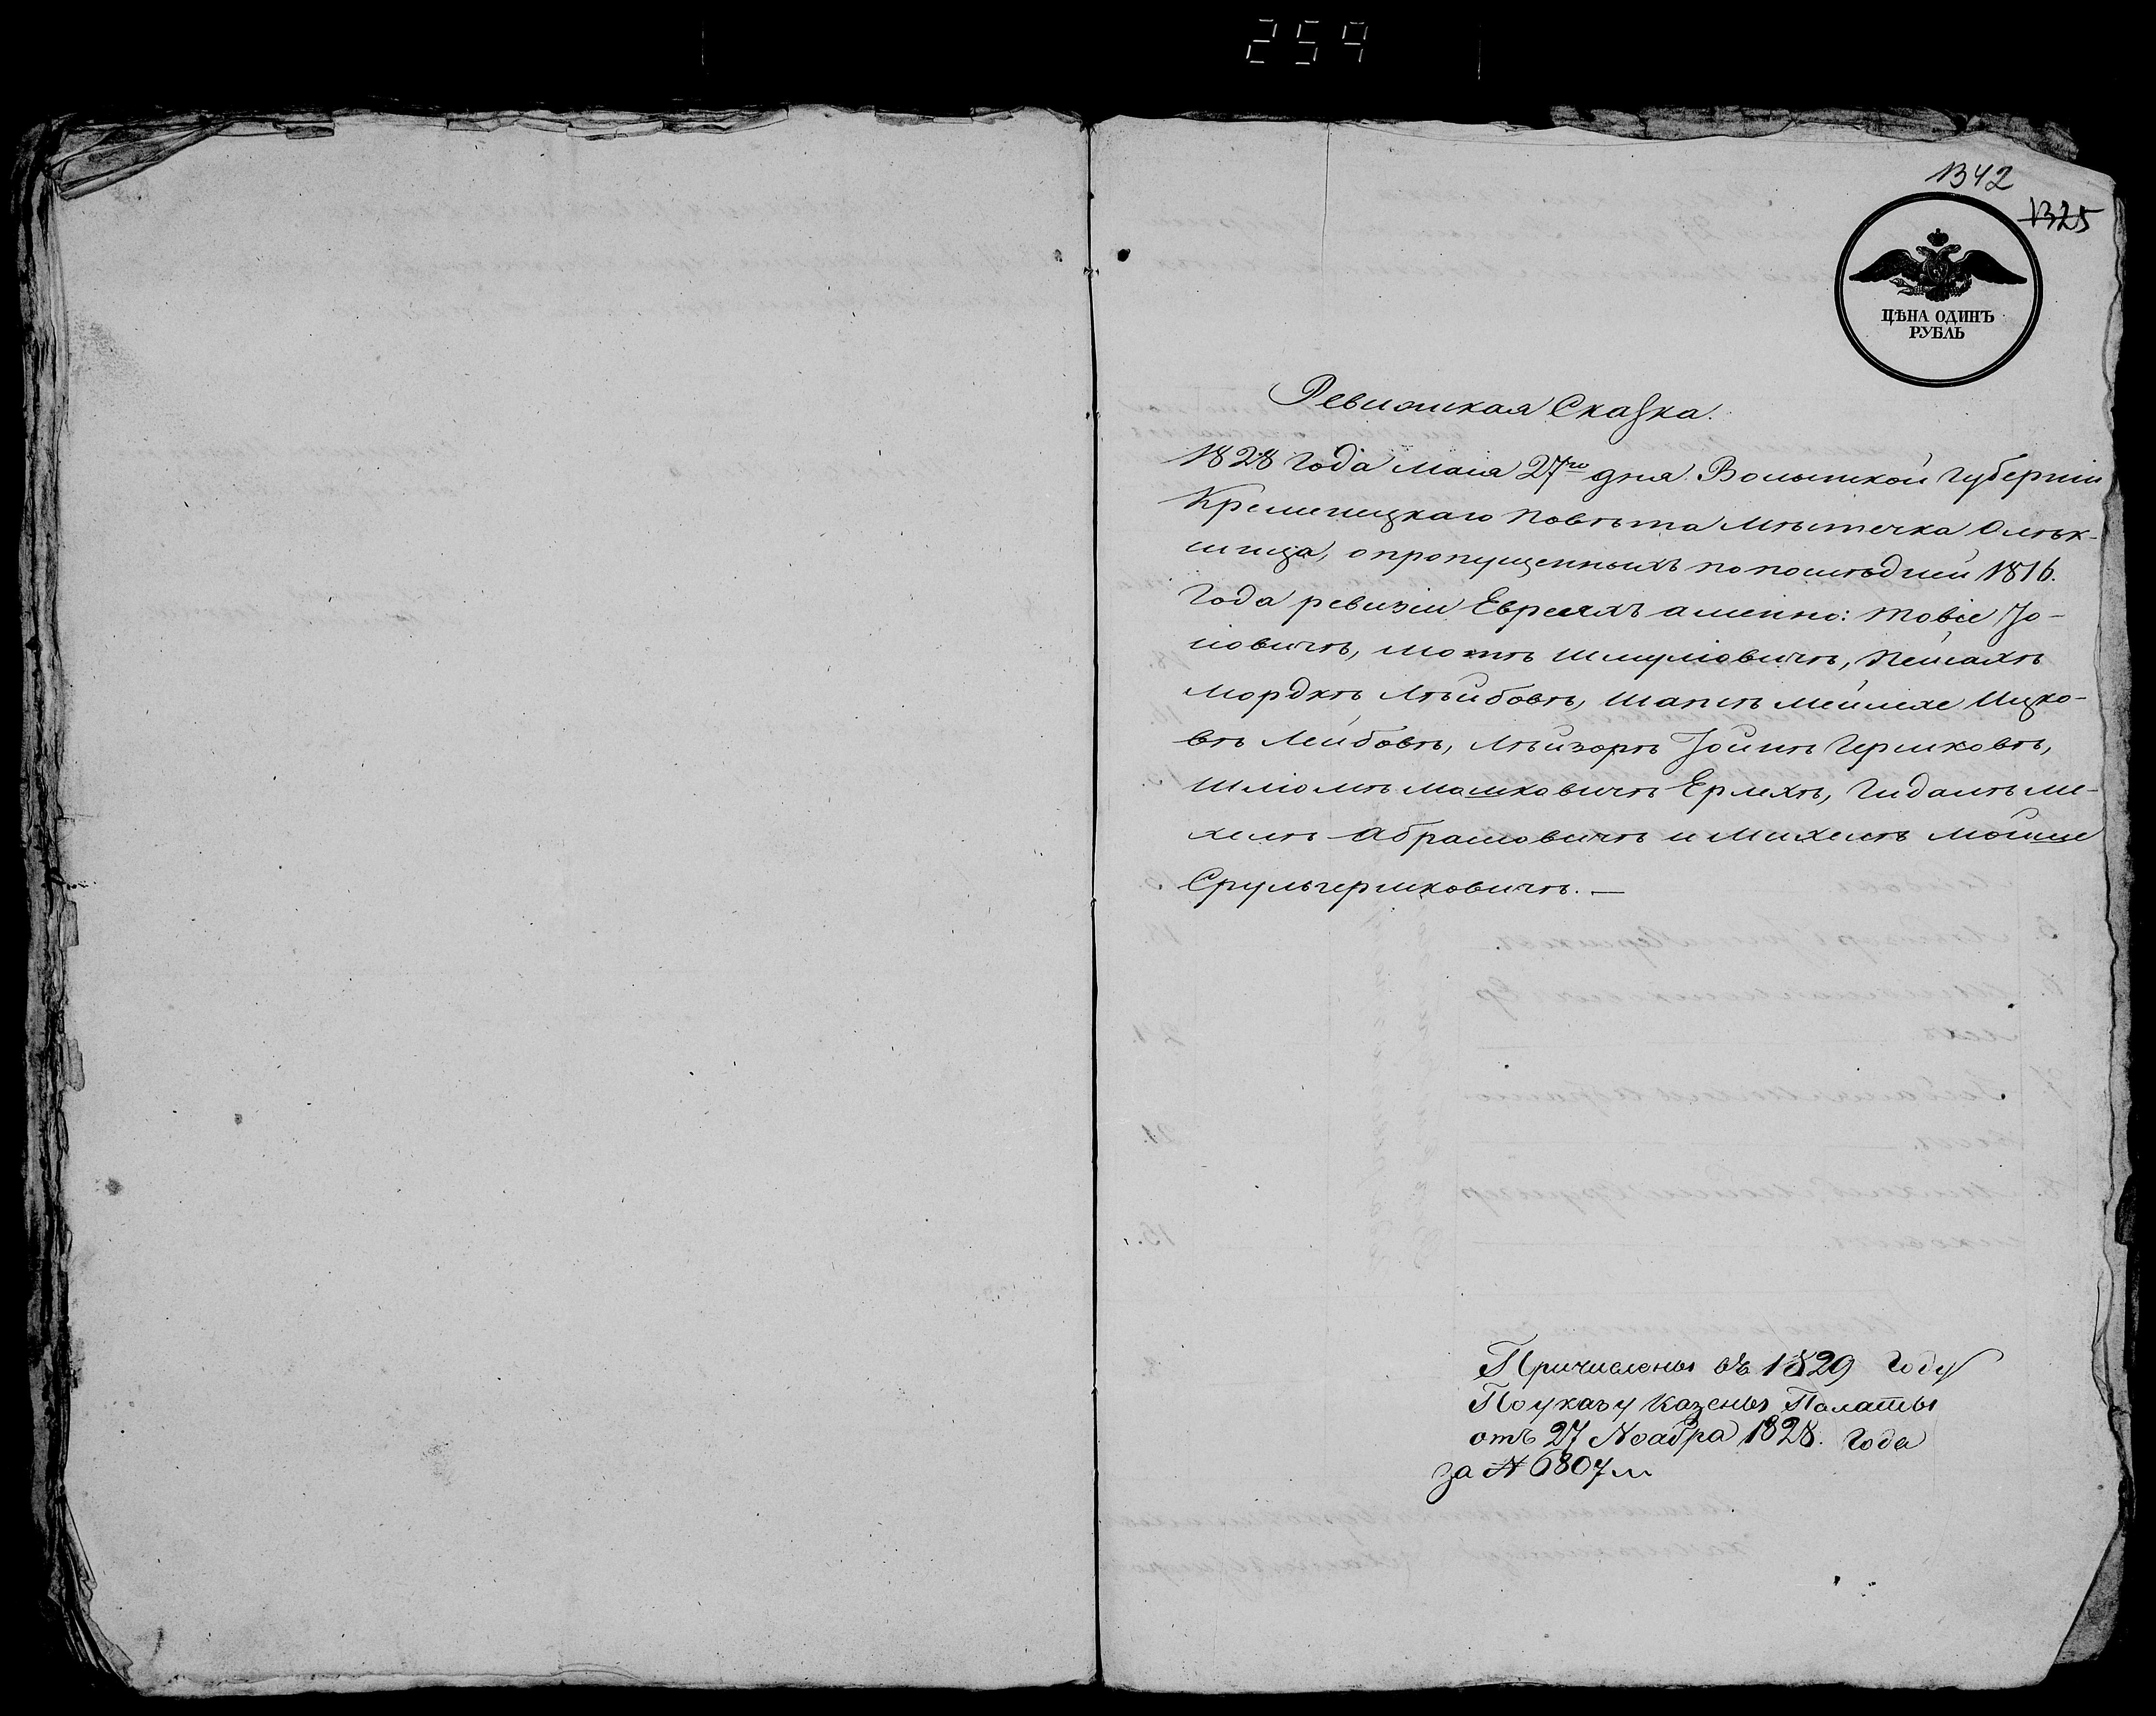 259
1342
1325
ЦѢНА ОДИНЪ
РУБЛЬ
Ревизкая Сказка.
1828 года маія 27го дня. Волынской губерніи
Кременецкаго Повѣта Мѣстечка Олѣк-
синца, о пропущенныхъ по послѣдней 1816.
Года ревизіи Евреяхъ а менно: Товіе Іо-
новичѣ, Мотѣ Шмуліовичѣ, Пейсахѣ
Мордкѣ Лѣйбовѣ, Шапсѣ Мейлехе Ицко-
вѣ Лейбовѣ, Лѣйзорѣ Іойнѣ Гершковѣ,
Шліомѣ Мошковичѣ Ерлехѣ, Гидалѣ Ми-
хелѣ Абрамовичѣ и Михелѣ Мойше
Срульгершковичѣ. —
Причислены въ 1829 году
По указу Казены Палаты
отъ 27 Ноабра 1828. Года
за № 6807м